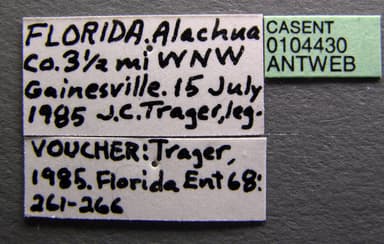 FLORIDA. Alachua
Co. 3½ mi WNW
Gainesville. 15 July
1985 J.C.Trager, leg.
CASENT
0104430
ANTWEB
VOUCHER: Trager,
1985. Florida Ent 68:
261-266